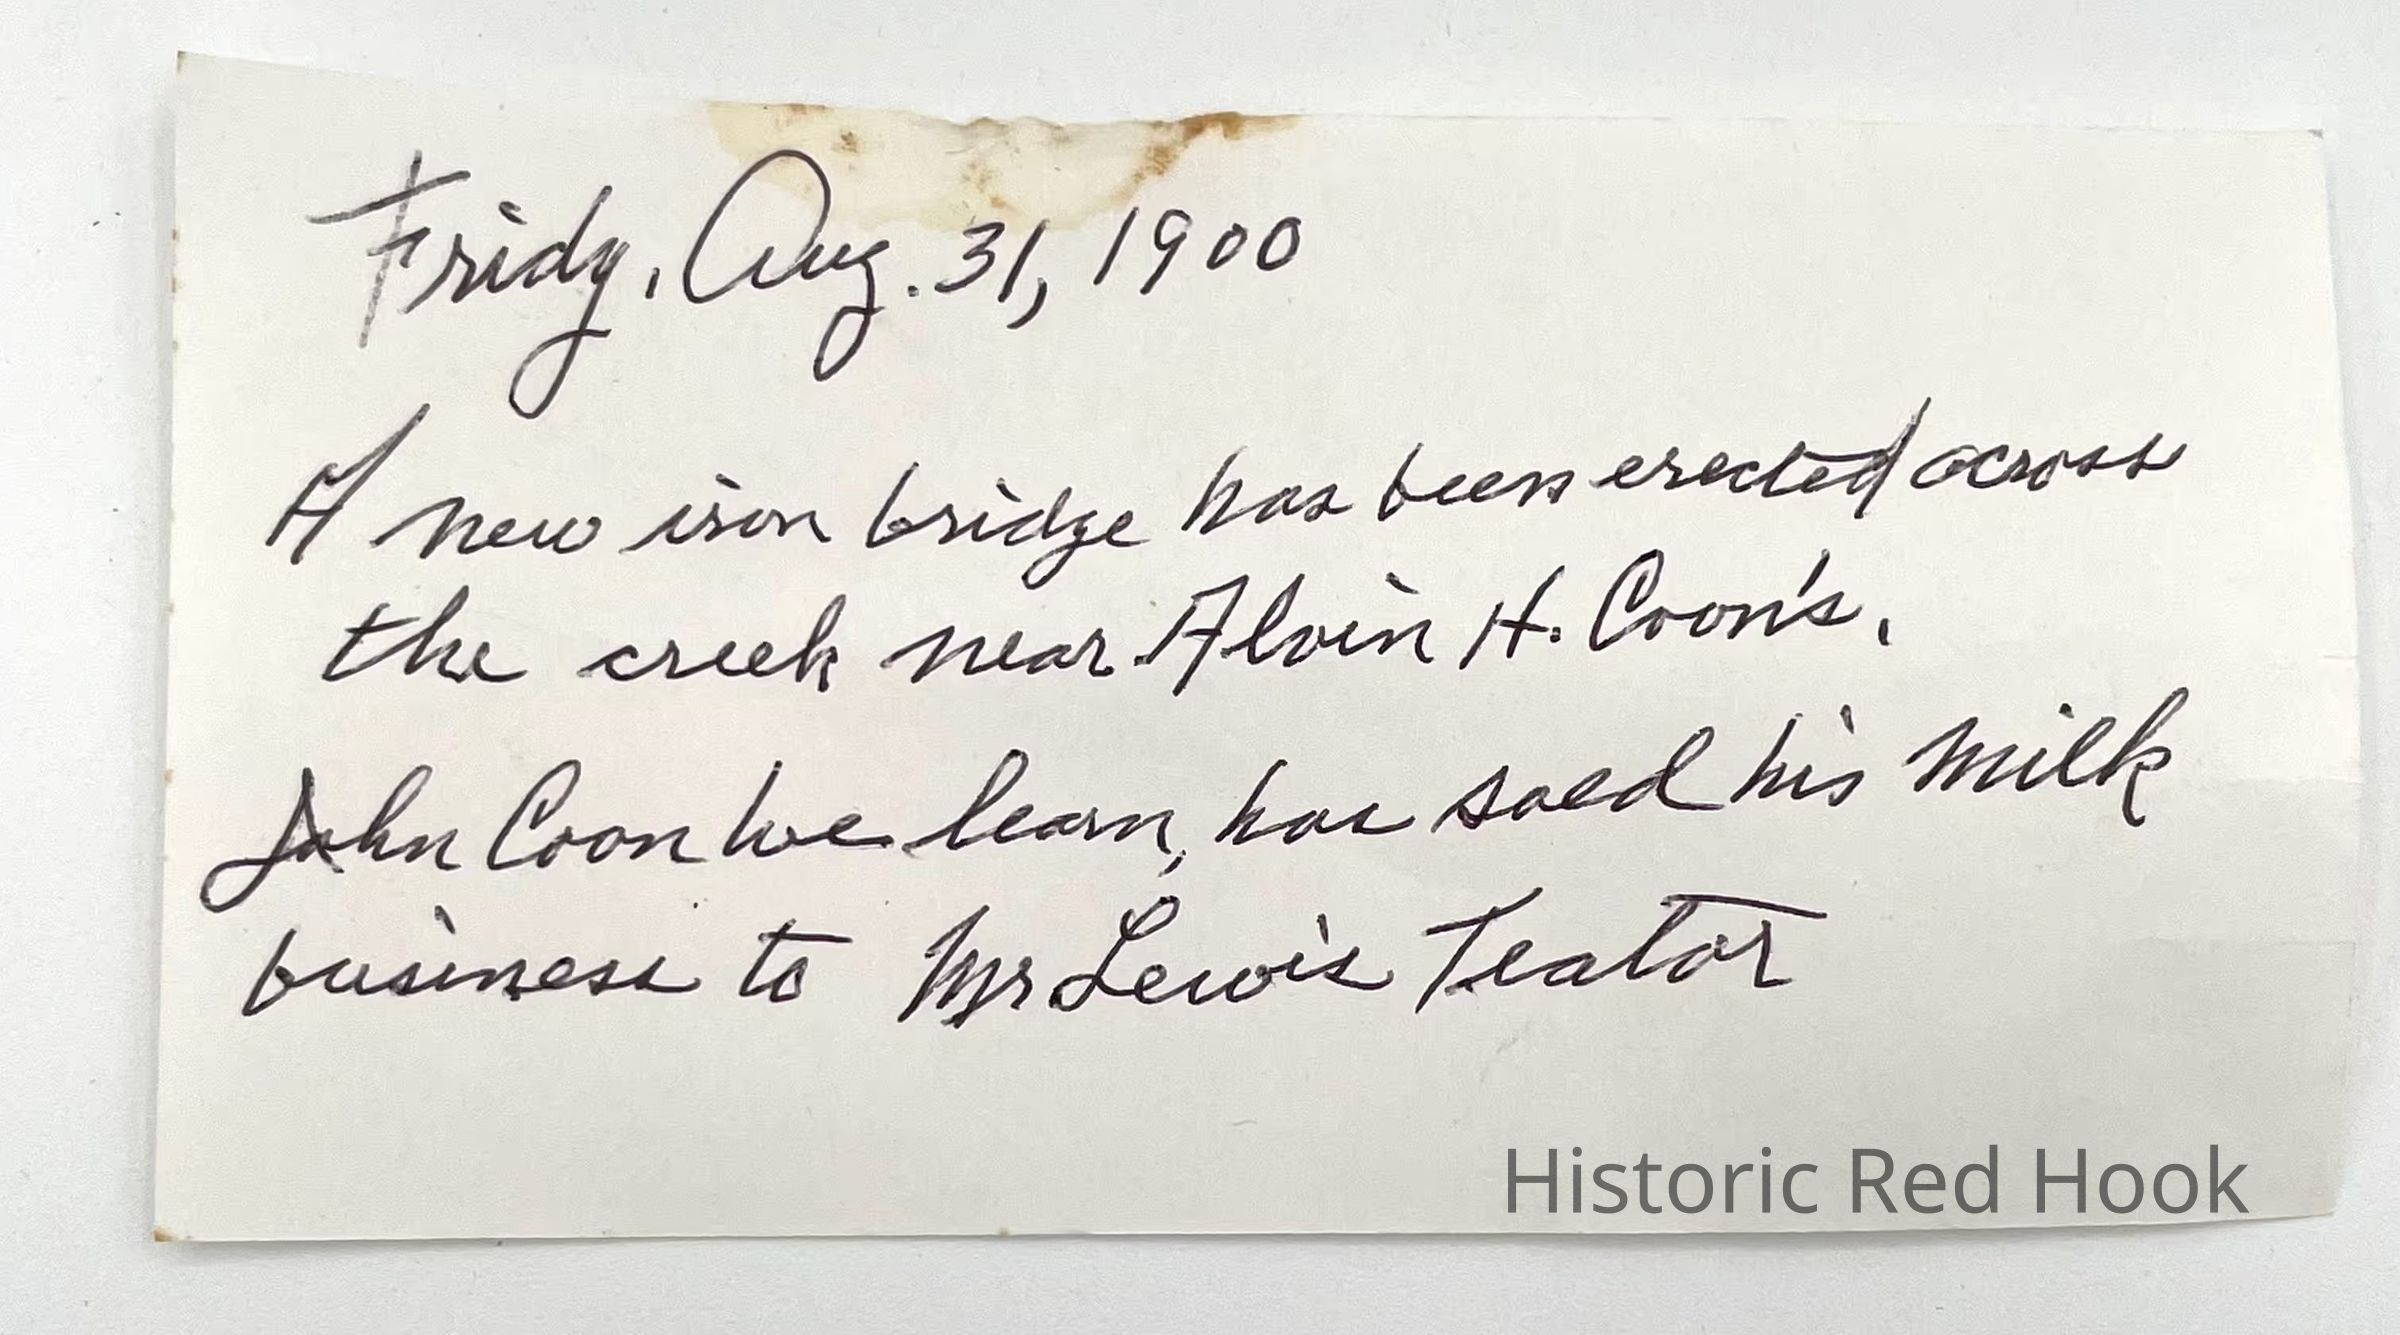 Fridy, Aug. 31, 1900
A new iron bridge has been erected across
the creek near Alvin H. Coon's.
John Coon we learn, has soed his milk
business to Mr Lewis Teator
Historic Red Hook